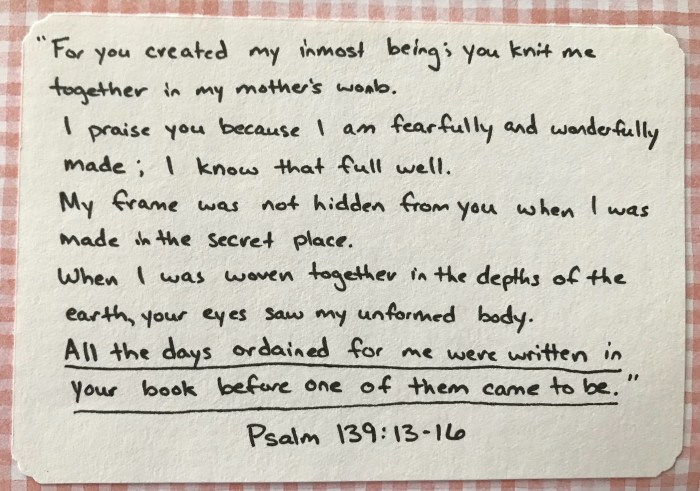 "For you created my inmost being; you knit me
together in my mother's womb.
I praise you because I am fearfully and wonderfully
made; I know that full well.
My frame was not hidden from you when I was
made in the secret place.
When I was woven together in the depths of the
earth, your eyes saw my unformed body.
All the days ordained for me were written in
your book before one of them came to be."
Psalm 139:13-16